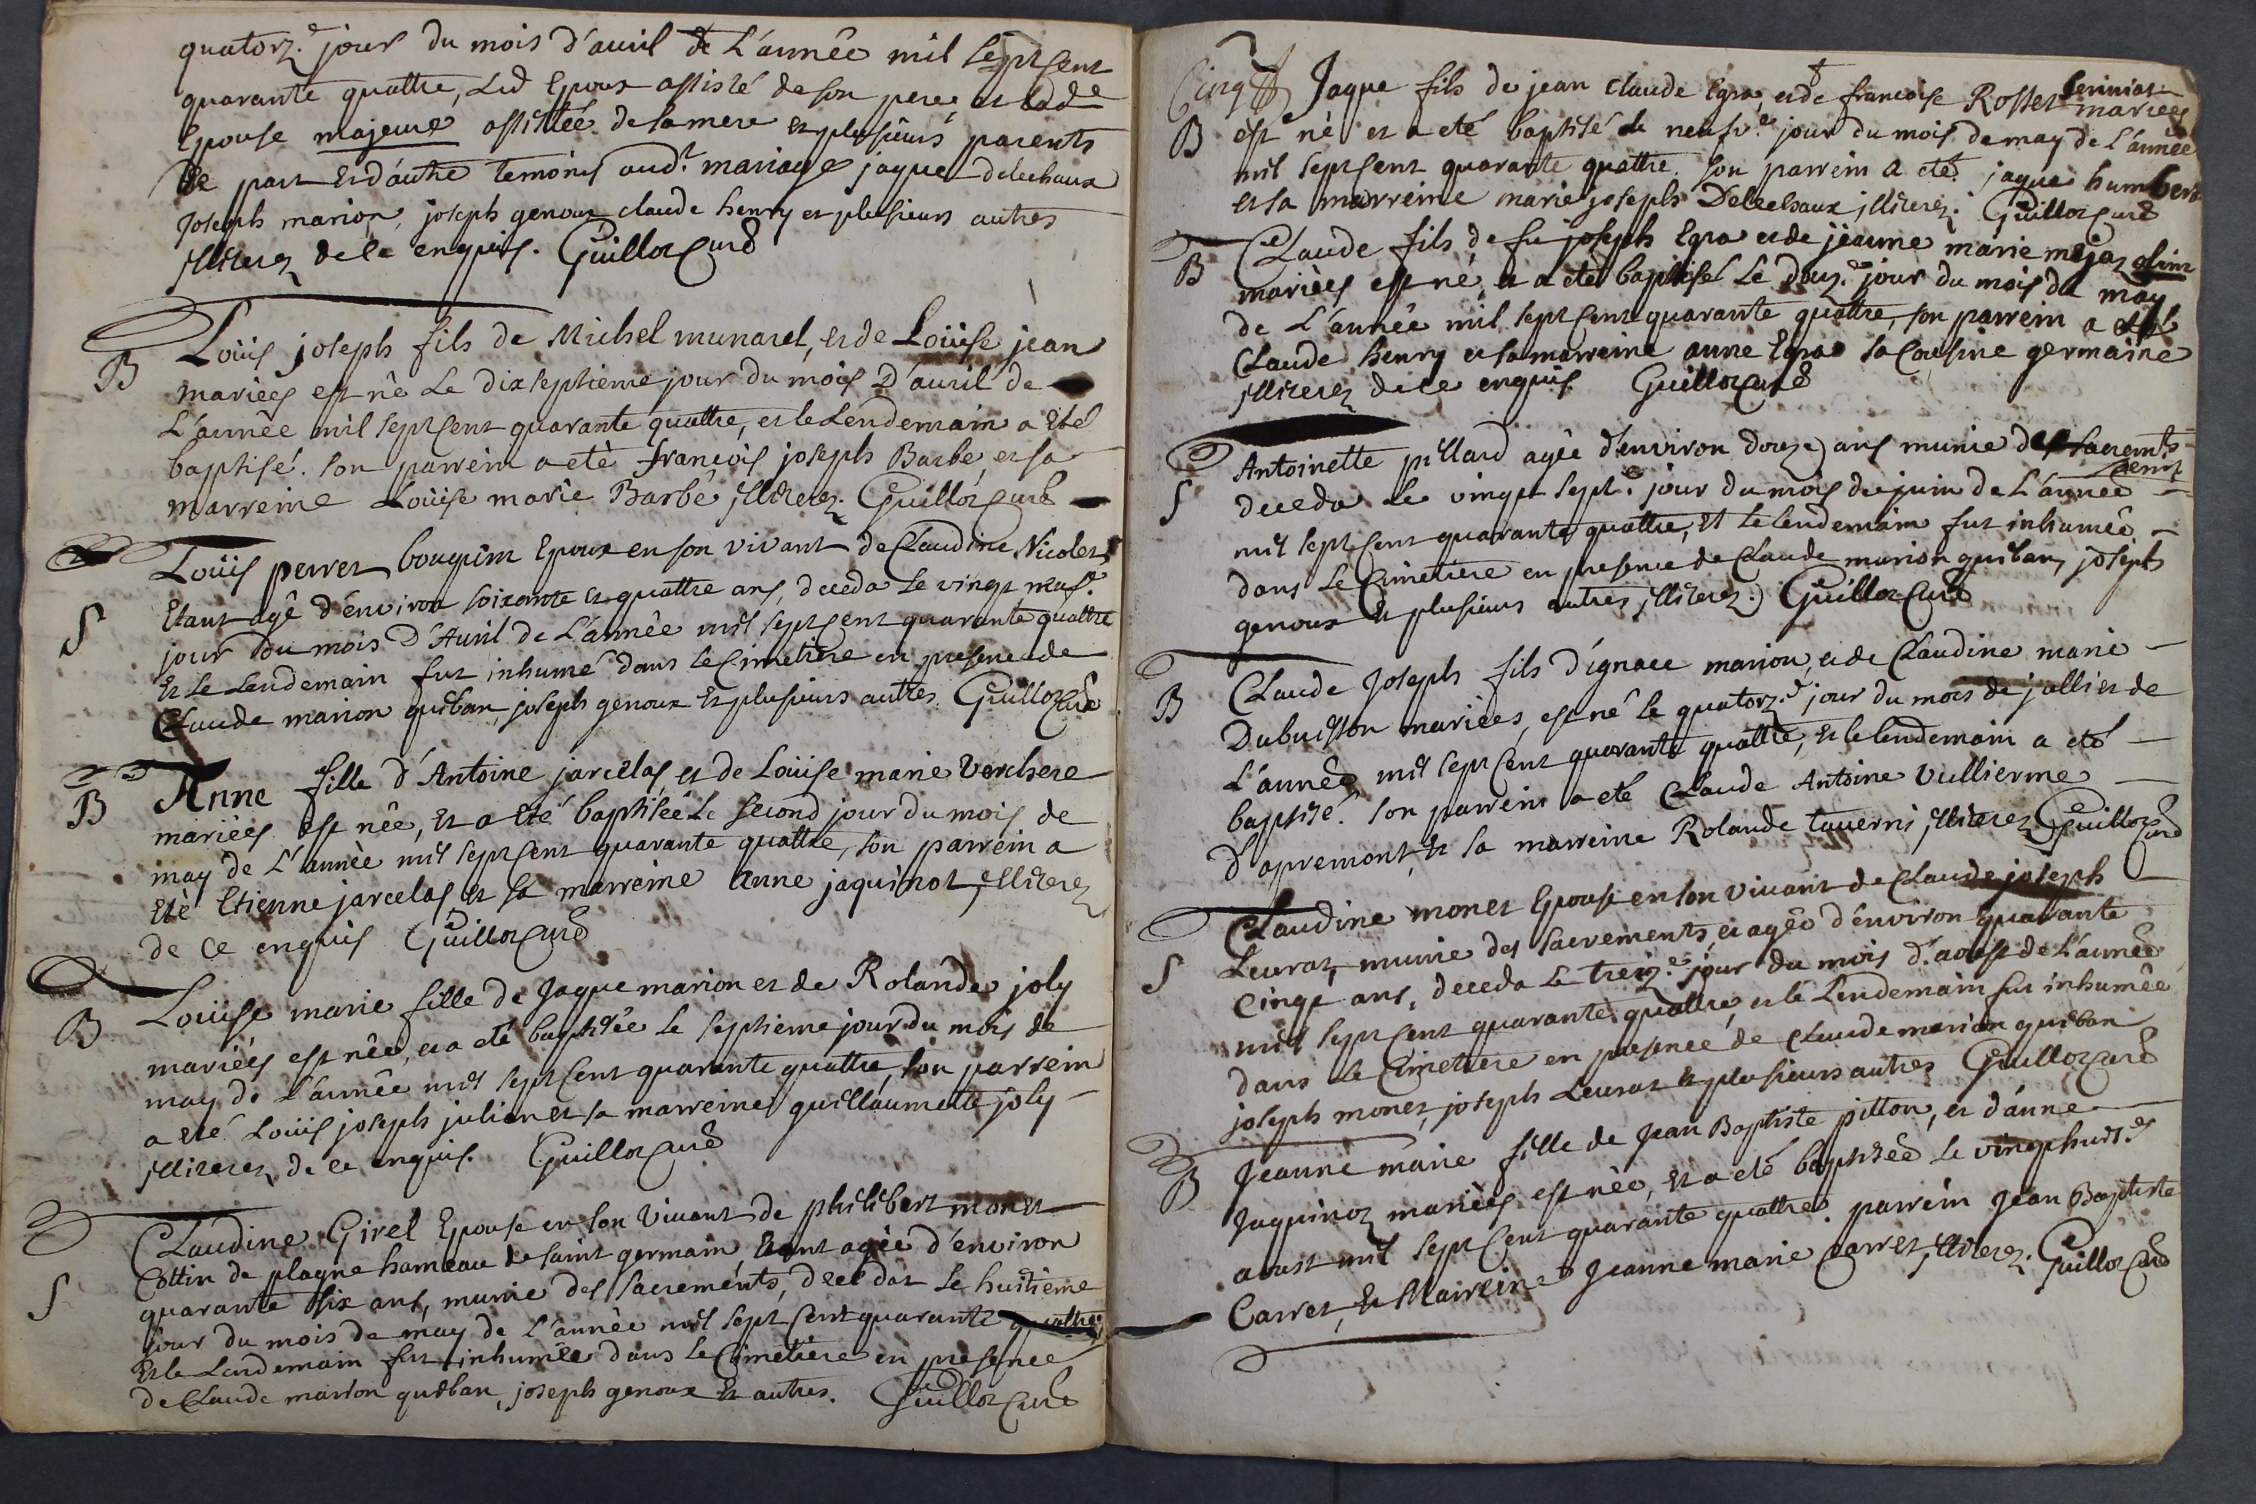 quatorz.e jour du mois d'auril de L'année mil sept cent
quarante quattre, Led Epoux assisté de son pere, et lade
Epouse majeure assistée de sa mere et plusieurs parents
de part et d'autre temoins aud.t mariage jaque delechaux
Joseph marion, joseph genoux claude henry et plusieurs autres
jlliterez de ce enquis. Guillot Curé
B
Loüis joseph fils de Michel munarel, et de Loüise jean
mariées est né Le dix septieme jour du mois D'auril de
L'année mil sept cent quarante quattre, et le Lendemain a Eté
baptisé. son parrein a eté françois joseph Barbé, et sa
marreine Loüise marie Barbé jlliterez. Guillot Curé
S
Loüis perret bouquin Epoux en son vivant de Claudine Nicolet
Etant agé d'environ soixante et quattre ans, deceda le vingt neuf.e
jour du mois D'Auril de L'année mil sept cent quarante quattre
Et Le Lendemain fut inhumé dans le Cimetiere en presence de
Claude marion quiban, joseph genoux Et plusieurs autres. Guillot Curé
B
Anne fille d'Antoine jarcelas, et de Loüise marie Verchere
mariées est née, Et a Eté baptisée Le second jour du mois de
may de L'année mil sept cent quarante quattre, son parrein a
Eté Etienne jarcelas et sa marreine Anne jaquinot, jlliterez
de ce enquis Guillot Curé
B
Loüise marie fille de Jaque marion et de Rolande joly
mariées est née, et a eté baptisée le septieme jour du mois de
may de L'année mil sept cent quarante quattre, son parrein
a eté Loüis joseph julian et sa marreine guillaumette joly
jlliterez de ce enquis. Guillot Curé
S
Claudine Girel Epouse en son Vivant de philibert monet
Cottin de plagne hameau de saint germain Etant agée d'environ
quarante six ans, munie des sacrements, decedat le huitieme
jour du mois de may de L'année mil sept cent quarante quattre,
Et le Lendemain fut inhumée dans Le Cimetiere en presence
de Claude marion quiban, joseph genoux Et autres. Guillot Curé
Cinq
B
Jaque fils de jean claude Egra, et de francoise Rosset mariées
est né et a eté baptisé le neufv.e jour du mois de may de L'année
mil sept cent quarante quattre. son parrein a eté jaque humbert
et sa marreine marie joseph Delechaux jlliterez. Guillot Curé
B
Claude fils de fu joseph Egra et de jeanne marie mejaz olim
mariées est né, et a eté baptisé Le douz.e jour du mois de may
de L'année mil sept cent quarante quattre, son parrein a eté
Claude henry et sa marreine anne Egra sa Cousine germaine
jlliterez de ce enquis Guillot Curé
S
Antoinette pillard agée d'environ douze ans munie des sacrem.ts
deceda Le vingt sept.e jour du mois de juin de L'année
mil sept cent quarante quattre, Et le lendemain fut inhumée
dans Le Cimetiere en presence de Claude marion quiban, joseph
genoux Et plusieurs autres jlliterez. Guillot Curé
B
Claude Joseph fils d'ignace marion, et de Claudine marie
Dubuisson mariées, est né le quatorz.e jour du mois de juilliet de
L'année mil sept cent quarante quattre, Et le lendemain a eté
baptisé. son parrein a eté Claude Antoine Vullierme
d'apremont, Et sa marreine Rolande taverni jlliterez Guillot Curé
S
Claudine monet Epouse en son Vivant de Claude joseph
Leurat, munie des sacrements, et agée d'environ quarante
cinqt ans, deceda Le treiz.e jour du mois d'aoust de L'année
mil sept cent quarante quattre, et le Lendemain fut inhumée
dans le Cimetiere en presence de Claude marion quiban
joseph monet, joseph Leurat Et plusieurs autres Guillot Curé
B
Jeanne marie fille de Jean Baptiste pitton, et d'anne
Jaquinoz mariées est née, Et a eté baptisée le vingthuit.e
aoust mil sept cent quarante quattre. parrein Jean Baptiste
Carret, Et Marreine Jeanne marie Carret jlliterez. Guillot Curé